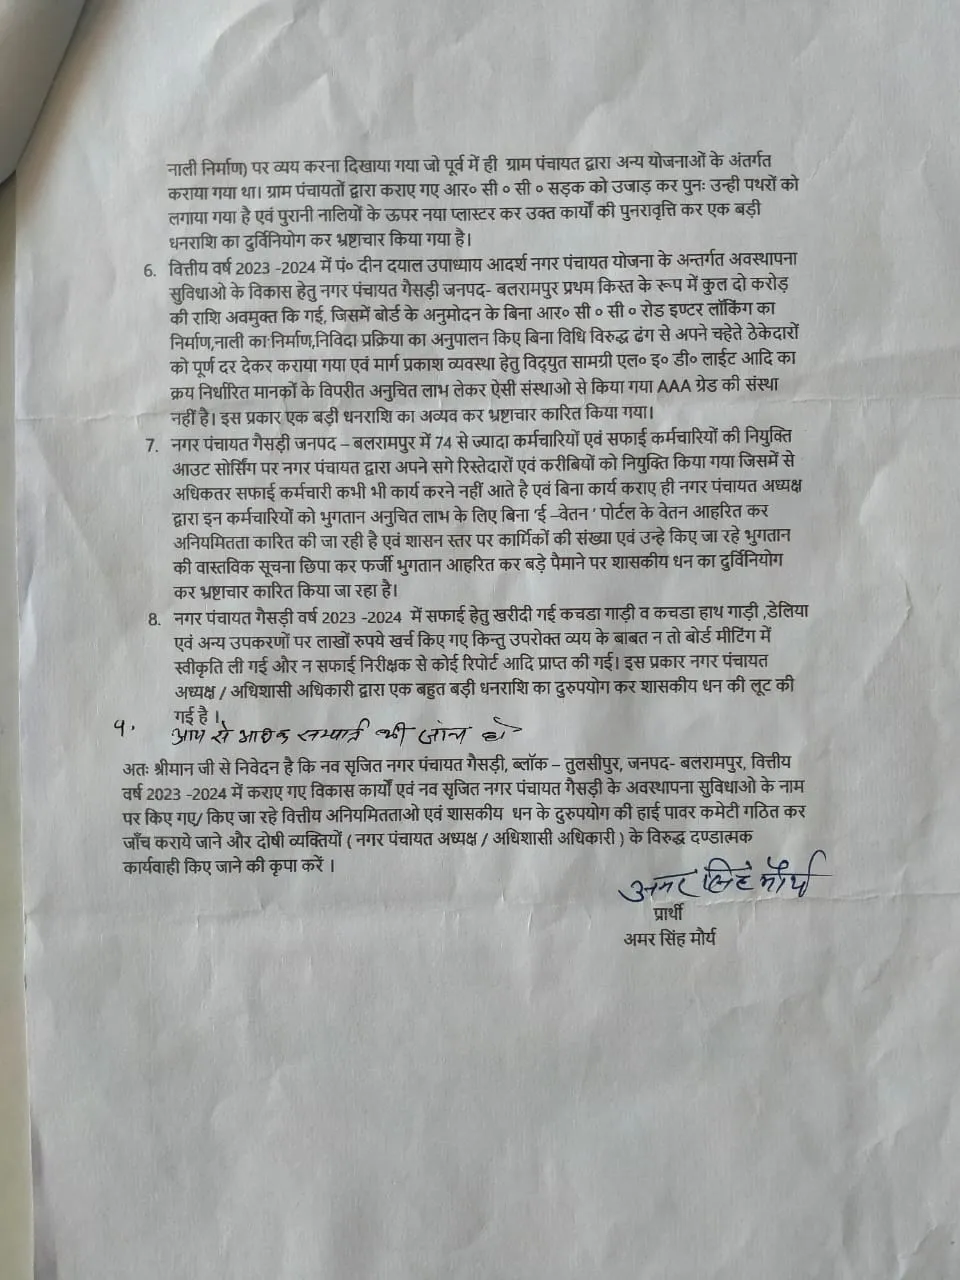 नाली निर्माण) पर व्यय करना दिखाया गया जो पूर्व में ही ग्राम पंचायत द्वारा अन्य योजनाओं के अंतर्गत
कराया गया था। ग्राम पंचायतों द्वारा कराए गए आर० सी ० सी ० सड़क को उजाड़ कर पुनः उन्ही पथरों को
लगाया गया है एवं पुरानी नालियों के ऊपर नया प्लास्टर कर उक्त कार्यों की पुनरावृत्ति कर एक बड़ी
धनराशि का दुर्विनियोग कर भ्रष्टाचार किया गया है।
6. वित्तीय वर्ष 2023 -2024 में पं० दीन दयाल उपाध्याय आदर्श नगर पंचायत योजना के अन्तर्गत अवस्थापना
सुविधाओ के विकास हेतु नगर पंचायत गैसड़ी जनपद- बलरामपुर प्रथम किस्त के रूप में कुल दो करोड़
की राशि अवमुक्त कि गई, जिसमें बोर्ड के अनुमोदन के बिना आर० सी ० सी ० रोड इण्टर लॉकिंग का
निर्माण,नाली का निर्माण,निविदा प्रक्रिया का अनुपालन किए बिना विधि विरुद्ध ढंग से अपने चहेते ठेकेदारों
को पूर्ण दर देकर कराया गया एवं मार्ग प्रकाश व्यवस्था हेतु विद्युत सामग्री एल० इ० डी० लाईट आदि का
क्रय निर्धारित मानकों के विपरीत अनुचित लाभ लेकर ऐसी संस्थाओ से किया गया AAA ग्रेड की संस्था
नहीं है। इस प्रकार एक बड़ी धनराशि का अव्यव कर भ्रष्टाचार कारित किया गया।
7. नगर पंचायत गैसड़ी जनपद – बलरामपुर में 74 से ज्यादा कर्मचारियों एवं सफाई कर्मचारियों की नियुक्ति
आउट सोर्सिंग पर नगर पंचायत द्वारा अपने सगे रिस्तेदारों एवं करीबियों को नियुक्ति किया गया जिसमें से
अधिकतर सफाई कर्मचारी कभी भी कार्य करने नहीं आते है एवं बिना कार्य कराए ही नगर पंचायत अध्यक्ष
द्वारा इन कर्मचारियों को भुगतान अनुचित लाभ के लिए बिना 'ई –वेतन ' पोर्टल के वेतन आहरित कर
अनियमितता कारित की जा रही है एवं शासन स्तर पर कार्मिकों की संख्या एवं उन्हे किए जा रहे भुगतान
की वास्तविक सूचना छिपा कर फर्जी भुगतान आहरित कर बड़े पैमाने पर शासकीय धन का दुर्विनियोग
कर भ्रष्टाचार कारित किया जा रहा है।
8. नगर पंचायत गैसड़ी वर्ष 2023 -2024 में सफाई हेतु खरीदी गई कचडा गाड़ी व कचडा हाथ गाड़ी ,डेलिया
एवं अन्य उपकरणों पर लाखों रुपये खर्च किए गए किन्तु उपरोक्त व्यय के बाबत न तो बोर्ड मीटिंग में
स्वीकृति ली गई और न सफाई निरीक्षक से कोई रिपोर्ट आदि प्राप्त की गई। इस प्रकार नगर पंचायत
अध्यक्ष / अधिशासी अधिकारी द्वारा एक बहुत बड़ी धनराशि का दुरुपयोग कर शासकीय धन की लूट की
गई है ।
९. आय से अधिक सम्पत्ति की जांच हो
अतः श्रीमान जी से निवेदन है कि नव सृजित नगर पंचायत गैसड़ी, ब्लॉक – तुलसीपुर, जनपद- बलरामपुर, वित्तीय
वर्ष 2023 -2024 में कराए गए विकास कार्यों एवं नव सृजित नगर पंचायत गैसड़ी के अवस्थापना सुविधाओ के नाम
पर किए गए/ किए जा रहे वित्तीय अनियमितताओ एवं शासकीय धन के दुरुपयोग की हाई पावर कमेटी गठित कर
जाँच कराये जाने और दोषी व्यक्तियों ( नगर पंचायत अध्यक्ष / अधिशासी अधिकारी ) के विरुद्ध दण्डात्मक
कार्यवाही किए जाने की कृपा करें ।
अमर सिंह मौर्य
प्रार्थी
अमर सिंह मौर्य